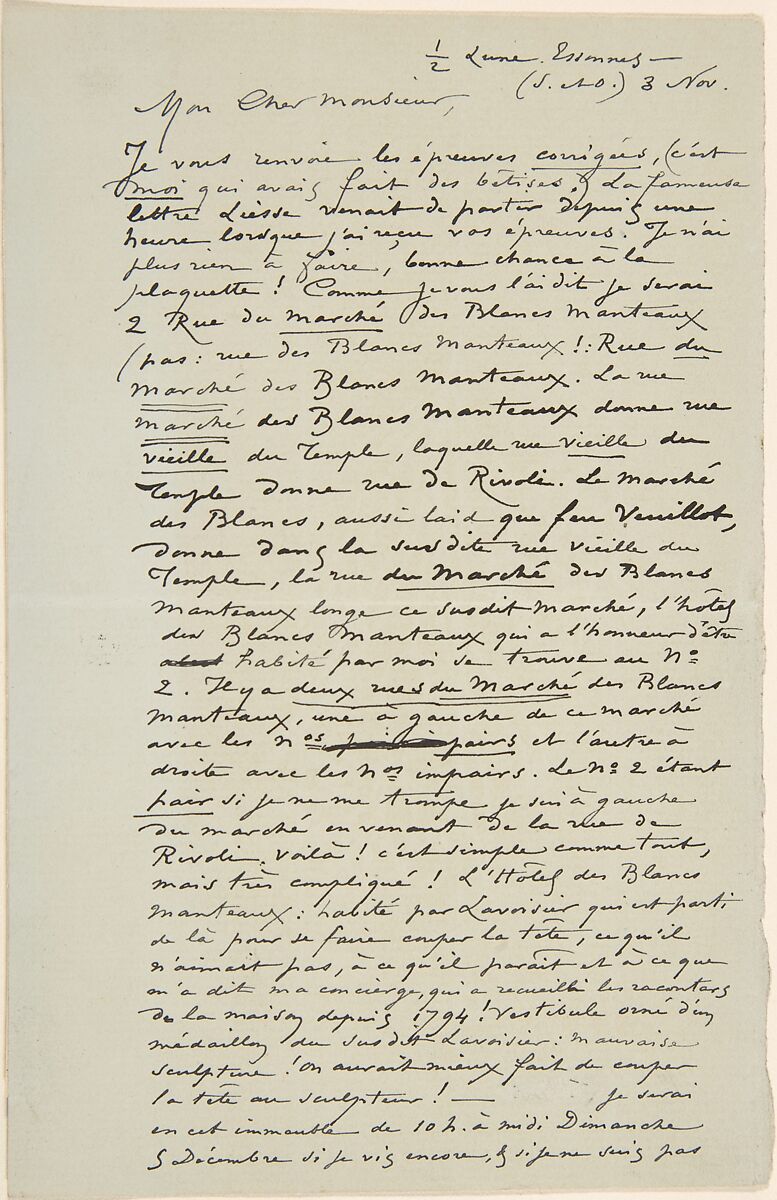 ½ Lune. Essonnes —
(S. et O.) 3 Nov.
Mon Cher Monsieur,
Je vous renvoie les épreuves corrigées, (c'est
moi qui avais fait des bêtises.) La fameuse
lettre Liesse venait de partir depuis une
heure lorsque j'ai reçu vos épreuves. Je n'ai
plus rien à faire, bonne chance à la
plaquette ! Comme je vous l'ai dit je serai
2 Rue du Marché des Blancs Manteaux
(pas : rue des Blancs Manteaux ! : Rue du
Marché des Blancs Manteaux. La rue
Marché des Blancs Manteaux donne rue
vieille du Temple, laquelle rue vieille du
Temple donne rue de Rivoli. Le Marché
des Blancs, aussi laid que feu Veuillot,
donne dans la susdite rue vieille du
Temple, la rue du Marché des Blancs
Manteaux longe ce susdit marché, l'hôtel
des Blancs Manteaux qui a l'honneur d'être
habité par moi se trouve au Nº
2. Il y a deux rues du Marché des Blancs
Manteaux, une à gauche de ce marché
avec les nos pairs et l'autre à
droite avec les Nos impairs. Le Nº 2 étant
pair si je ne me trompe je suis à gauche
du marché en venant de la rue de
Rivoli. Voilà ! c'est simple comme tout,
mais très compliqué ! L'Hôtel des Blancs
Manteaux : habité par Lavoisier qui est parti
de là pour se faire couper la tête, ce qu'il
n'aimait pas, à ce qu'il paraît et à ce que
m'a dit ma concierge, qui a recueilli les racontars
de la maison depuis 1794 ! Vestibule orné d'un
médaillon du susdit Lavoisier : mauvaise
sculpture ! On aurait mieux fait de couper
la tête au sculpteur ! — Je serai
en cet immeuble de 10 h. à midi Dimanche
5 Décembre si je vis encore, & si je ne suis pas